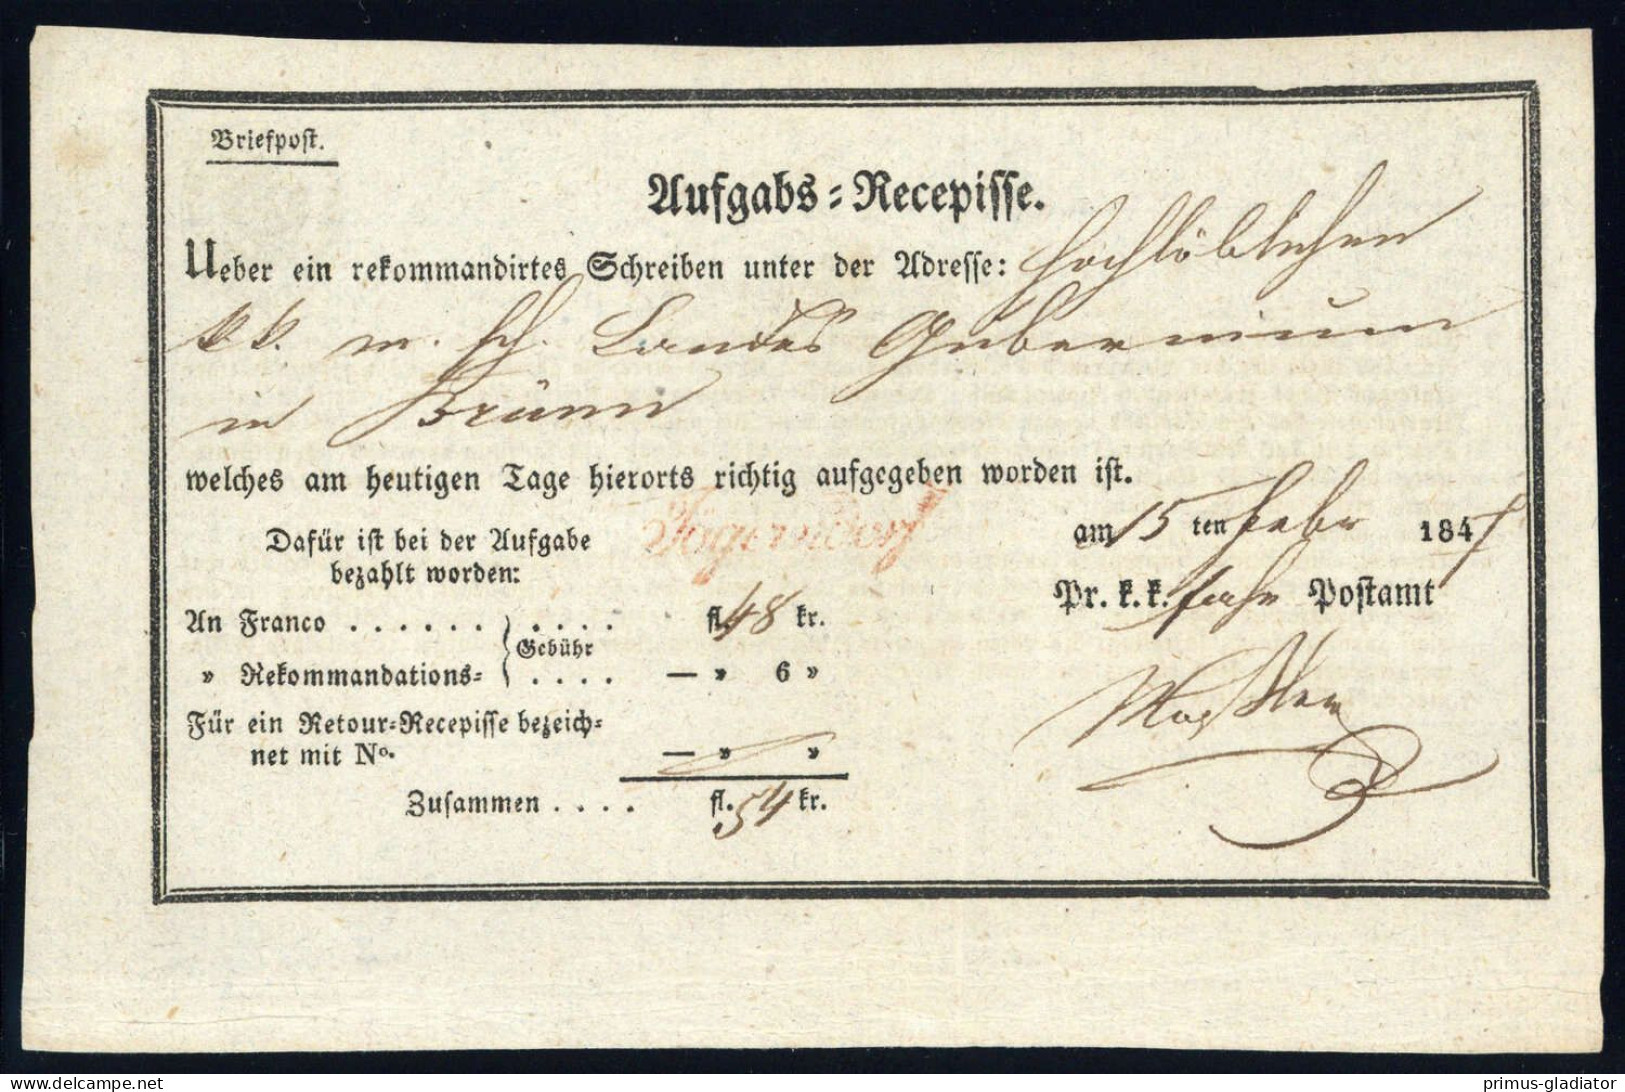 Briefpost.
Aufgabs-Recepisse.
Ueber ein rekommandirtes Schreiben unter der Adresse: Hochlöblichen
k.k. m. sch. Landes Gubernium
in Brünn
welches am heutigen Tage hierorts richtig aufgegeben worden ist.
Jägerndorf
am 15 ten Febr 1847
Dafür ist bei der Aufgabe
bezahlt worden:
Pr. k. k. Postamt
An Franco . . . . . . } . . . . fl. 48 kr.
Gebühr
» Rekommandations- } . . . . — » 6 »
Für ein Retour-Recepisse bezeich-
net mit No. — » »
Zusammen . . . . fl. 54 kr.
primus-gladiator